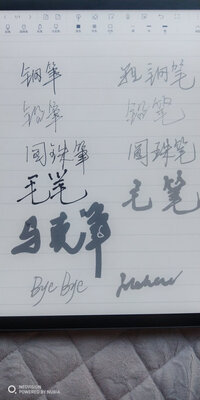 钢筆 粗钢笔
铅筆 铅笔
圆珠筆 圆珠笔
毛笔 毛笔
马克筆
Bye Bye
NEOVISION
POWERED BY NUBIA